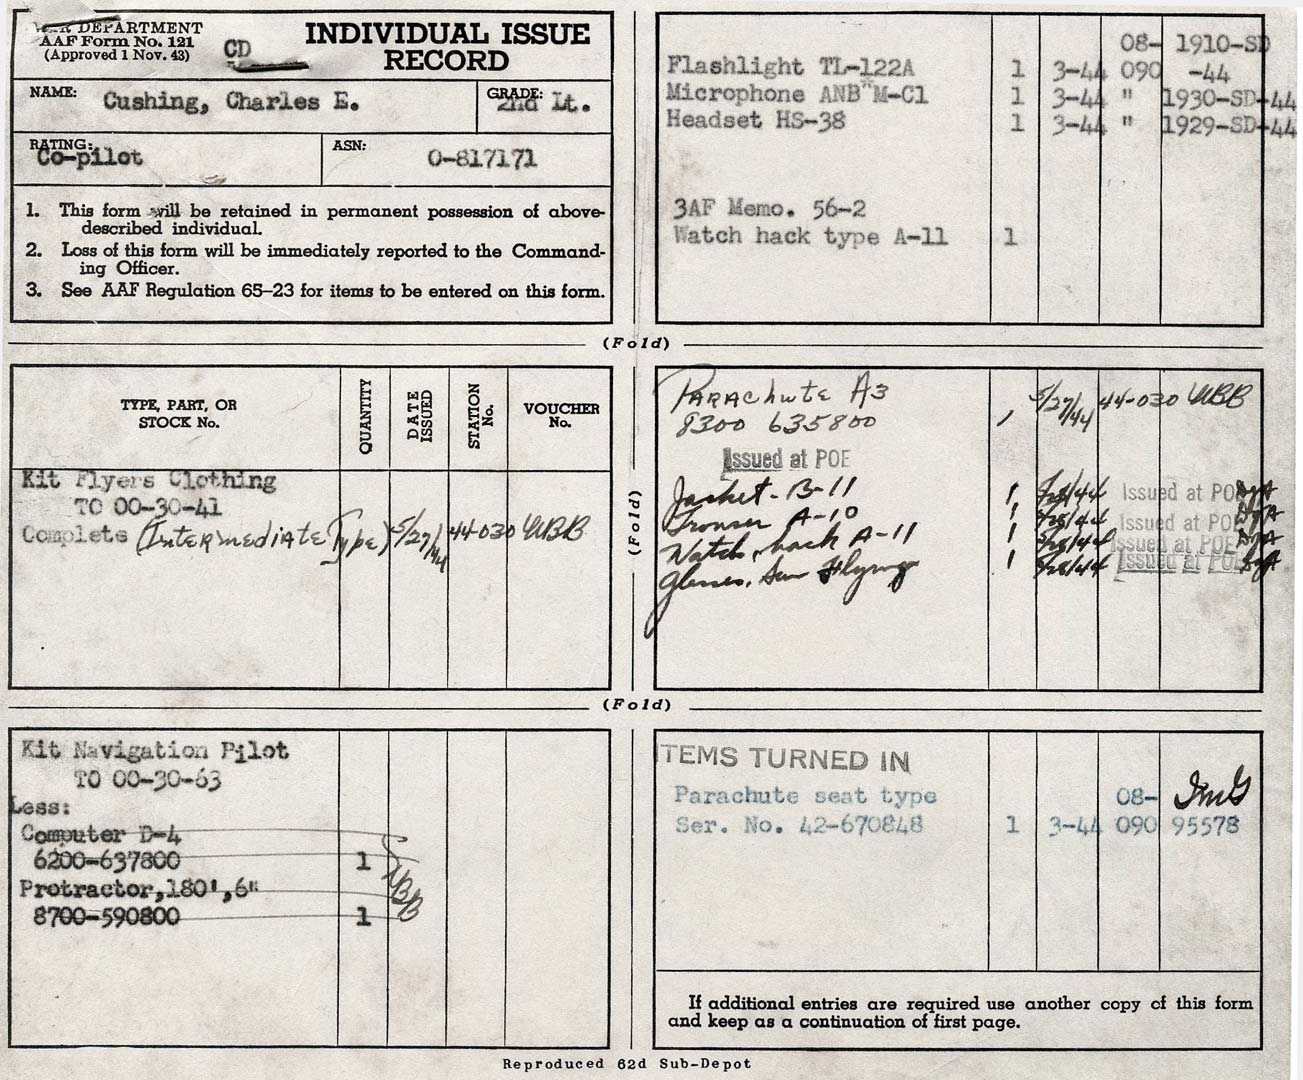 DEPARTMENT
AAF Form No. 121
(Approved 1 Nov. 43)
CD
INDIVIDUAL ISSUE
RECORD
NAME: Cushing, Charles E.
GRADE: 2nd Lt.
RATING: Co-pilot
ASN: O-817171
1. This form will be retained in permanent possession of above-
described individual.
2. Loss of this form will be immediately reported to the Command-
ing Officer.
3. See AAF Regulation 65-23 for items to be entered on this form.
08- 1910-SD
Flashlight TL-122A 1 3-44 090 -44
Microphone ANB M-C1 1 3-44 " 1930-SD-44
Headset HS-38 1 3-44 " 1929-SD-44
3AF Memo. 56-2
Watch hack type A-11 1
(Fold)
TYPE, PART, OR
STOCK No.
QUANTITY
DATE
ISSUED
STATION
No.
VOUCHER
No.
Kit Flyers Clothing
TO 00-30-41
Complete (Intermediate Type) 5/27/44 44-030 WBB
(Fold)
Parachute A3 5/27/44 44-030 WBB
8300 635800 1
Issued at POE
Jacket - B-11 1 5/28/44 Issued at POE
Trouser A-10 1 5/28/44 Issued at POE
Watch, hack A-11 1 5/28/44 Issued at POE
Glasses, Sun Flying 1 5/28/44 Issued at POE
(Fold)
Kit Navigation Pilot
TO 00-30-63
Less:
Computer D-4
6200-637800 1
Protractor,180',6"
8700-590800 1
WBB
ITEMS TURNED IN
Parachute seat type 08-
Ser. No. 42-670848 1 3-44 090 95578
If additional entries are required use another copy of this form
and keep as a continuation of first page.
Reproduced 62d Sub-Depot